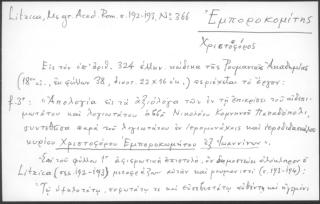 Litzica, Ms gr. Acad. Rom. σ. 192-193, Nο 366
Ἐμποροκομίτης
Χριστοφόρος
Εἰς τὸν ὑπ' ἀριθ. 324 ἑλλην. κώδικα τῆς Ρουμανικῆς Ἀκαδημίας
(18ου αἰ., ἐκ φύλλων 38, διαστ. 22 x 16 ἑκ.) περιέχεται τὸ ἔργον:
f. 3α: «Ἀπολογία εἰς τὰ ἀξιόλογα τῶν ἐν τῇ ἐπικρίσει τοῦ αἰδεσι-
μωτάτου καὶ λογιωτάτου ἀββᾶ Νικολάου Κομνηνοῦ Παπαδοπόλι,
συντεθεῖσα παρὰ τοῦ λογιωτάτου ἐν ἱερομονάχοις καὶ ἱεροδιδασκάλου
κυρίου Χριστοφόρου Ἐμποροκομήτου ἐξ Ἰωαννίνων».
Ἐπὶ τοῦ φύλλου 1α ἀφιερωτικὴ ἐπιστολή, ἣν δημοσιεύει ὁλόκληρον ὁ
Litzica (σελ. 192-193) μεταφράζων αὐτὴν καὶ ρουμανιστί (σ. 193-194):
«Τῷ ὑψηλοτάτῳ, σοφωτάτῳ τε καὶ εὐσεβεστάτῳ αὐθέντῃ καὶ ἡγεμόνι